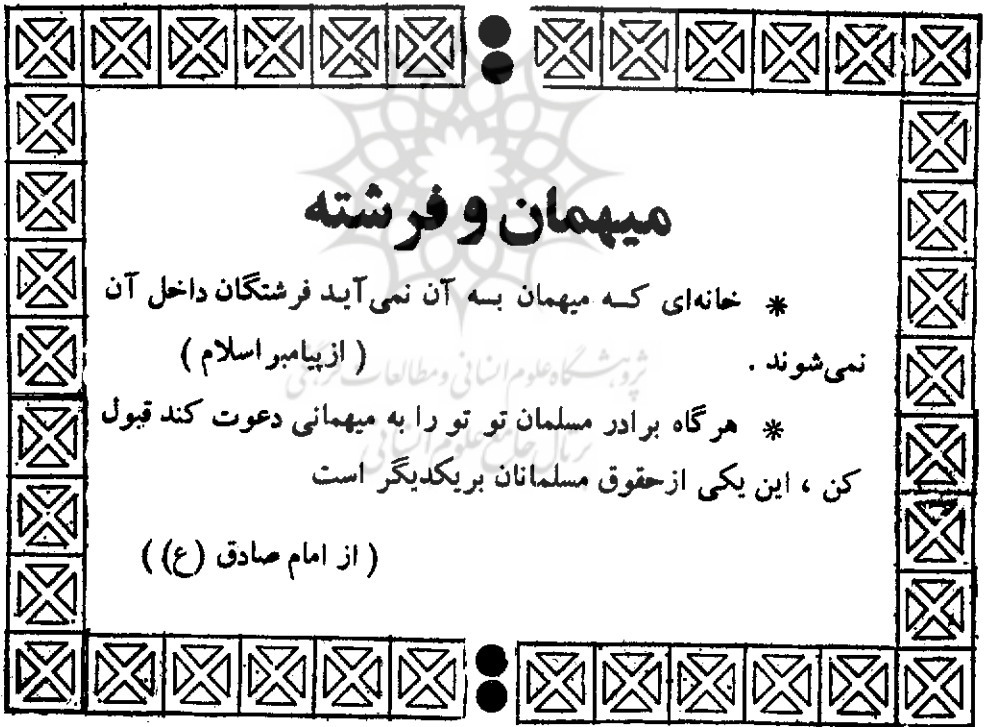 میهمان و فرشته
* خانه‌ای که میهمان به آن نمی‌آید فرشتگان داخل آن
نمی‌شوند . ( ازپیامبر اسلام )
پژوهشگاه علوم انسانی و مطالعات فرهنگی
* هرگاه برادر مسلمان تو تو را به میهمانی دعوت کند قبول
پرتال جامع علوم انسانی
کن ، این یکی ازحقوق مسلمانان بریکدیگر است
( از امام صادق (ع) )